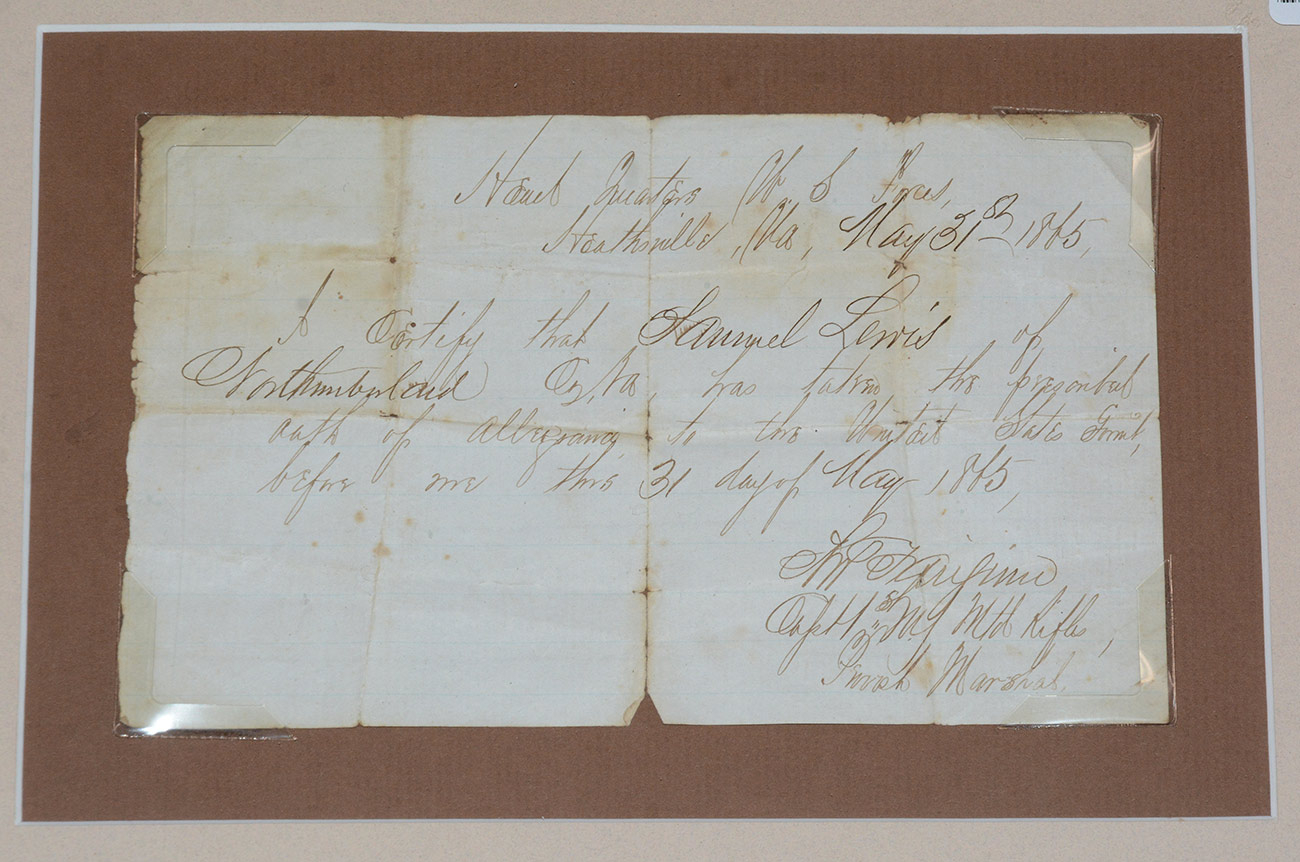 Head Quarters U S Forces,
Heathsville, Va, May 31st 1865,
I Certify that Samuel Lewis of
Northumberland Co, Va, has taken the prescribed
oath of allegiance to the United States Govmt,
before me this 31 day of May 1865,
Capt 1st N.Y. Mtd Rifles,
Provost Marshal,